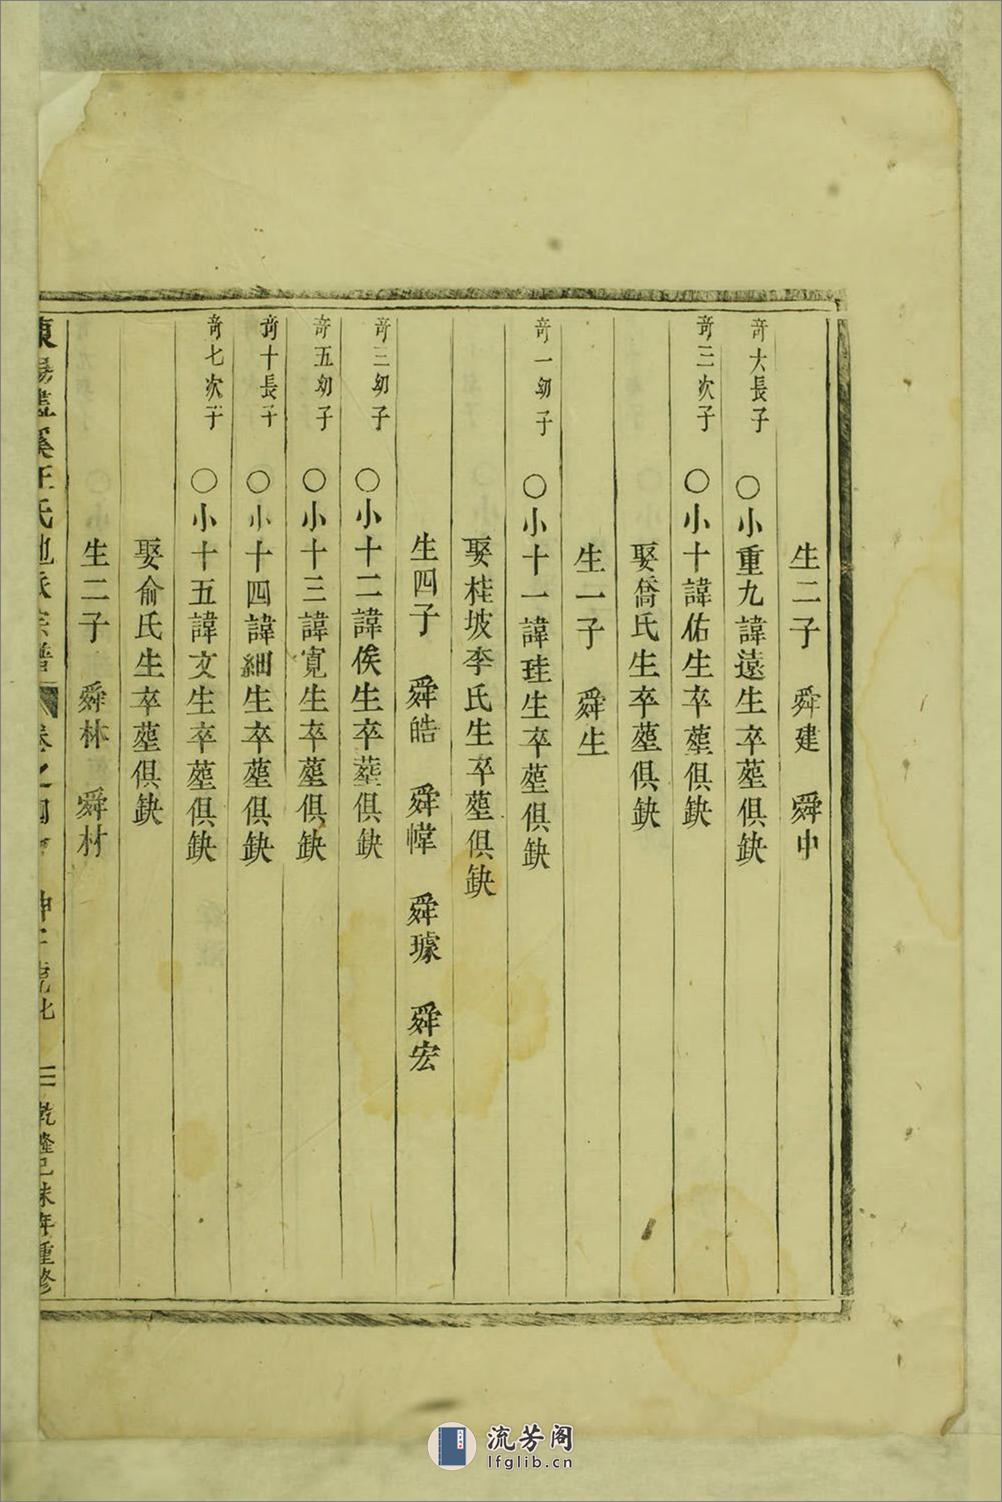 生二子 舜建 舜中
奇大長子 ○小重九諱遠生卒塟俱缺
奇三次子 ○小十諱佑生卒塟俱缺
娶喬氏生卒塟俱缺
生一子 舜生
奇一幼子 ○小十一諱珪生卒塟俱缺
娶桂坡李氏生卒塟俱缺
生四子 舜皓 舜幃 舜璩 舜宏
奇三幼子 ○小十二諱俟生卒塟俱缺
奇五幼子 ○小十三諱寛生卒塟俱缺
奇十長子 ○小十四諱細生卒塟俱缺
奇七次子 ○小十五諱文生卒塟俱缺
娶俞氏生卒塟俱缺
生二子 舜林 舜材
東陽 溪王氏 派宗譜 卷之四 坤二 乾隆己未年重修
流芳阁
lfglib.cn